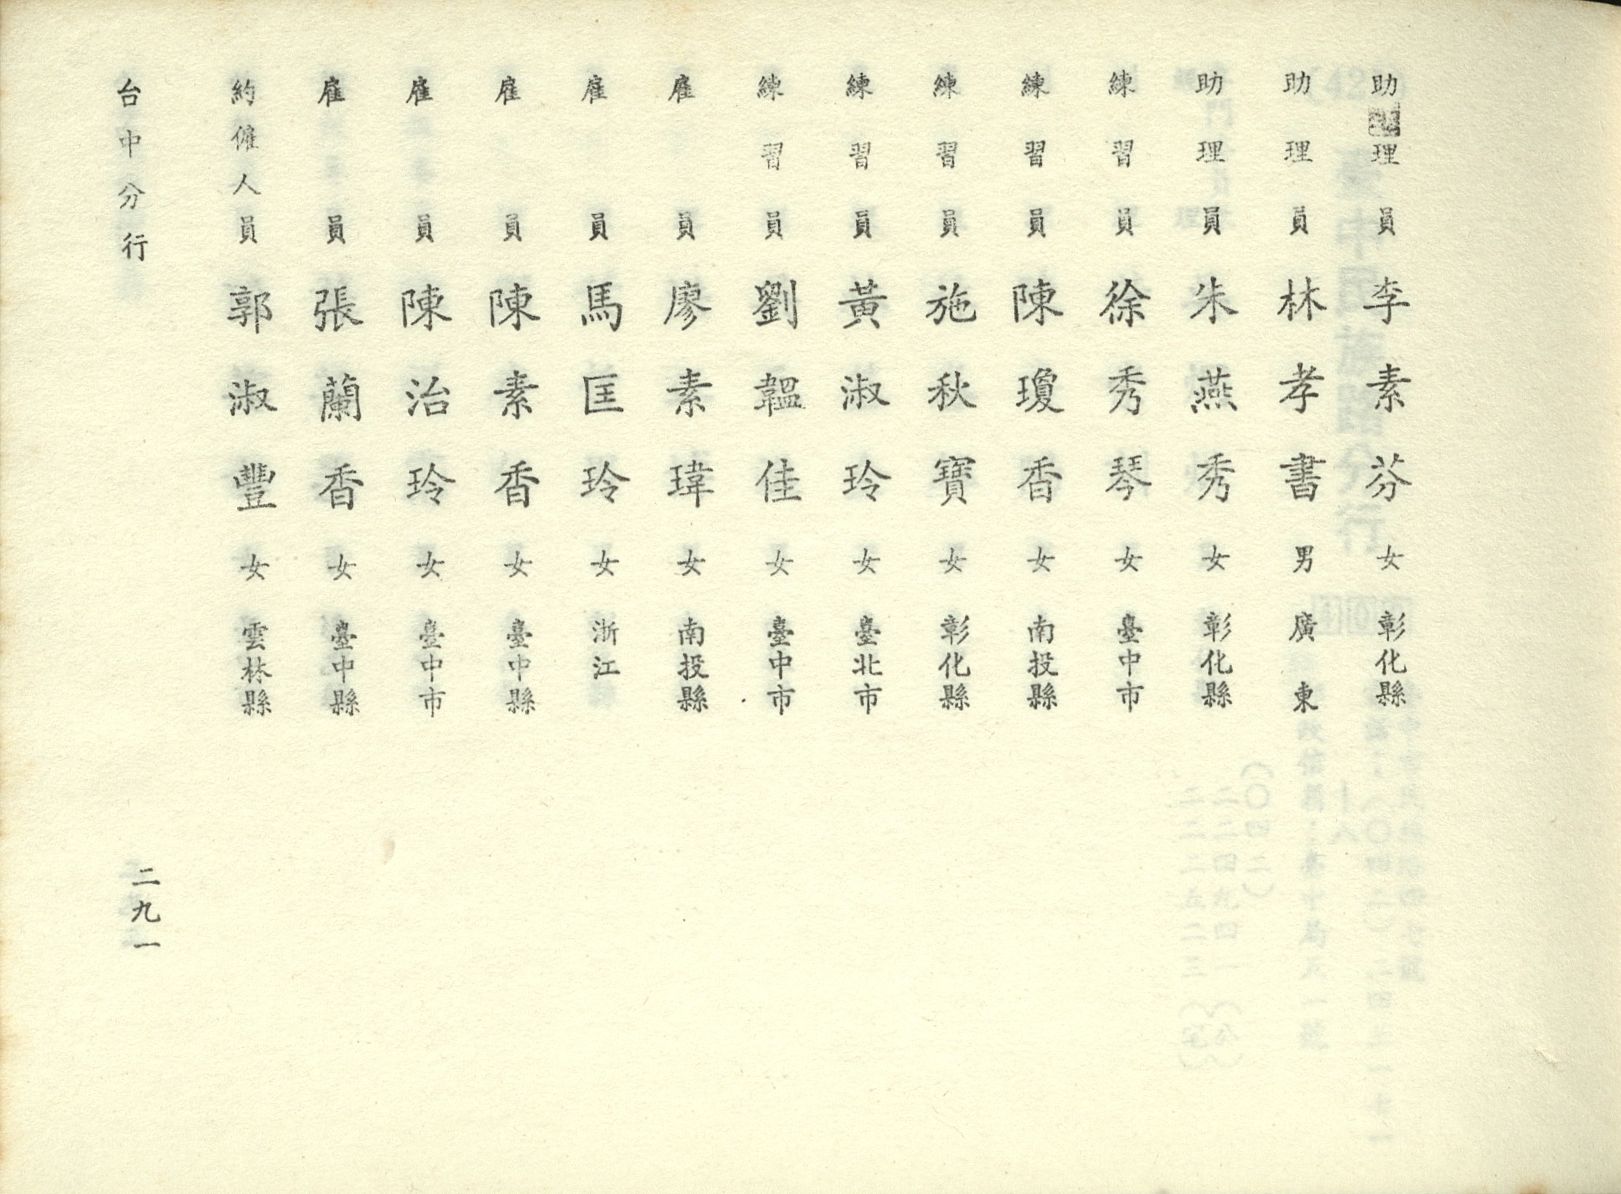 助理員 李素芬 女 彰化縣
助理員 林孝書 男 廣東
助理員 朱燕秀 女 彰化縣
練習員 徐秀琴 女 臺中市
練習員 陳瓊香 女 南投縣
練習員 施秋寶 女 彰化縣
練習員 黃淑玲 女 臺北市
練習員 劉韞佳 女 臺中市
雇員 廖素瑋 女 南投縣
雇員 馬匡玲 女 浙江
雇員 陳素香 女 臺中縣
雇員 陳治玲 女 臺中市
雇員 張蘭香 女 臺中縣
約僱人員 郭淑豐 女 雲林縣
台中分行 二九一